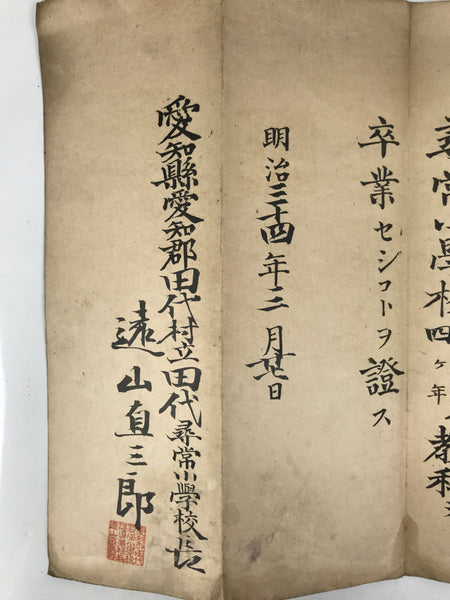 尋常小學校四ヶ年ノ教科ヲ
卒業セシコトヲ證ス
明治三十四年三月 日
愛知縣愛知郡田代村立田代尋常小學校長
遠山直三郎